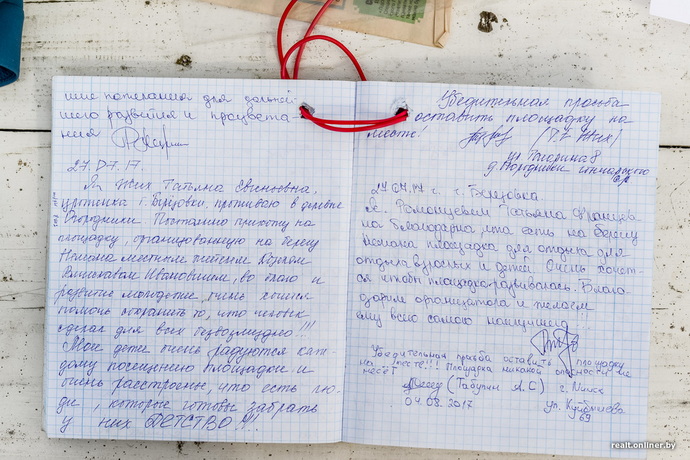 шие пожелания для дальней
шего развития и процвета
ния
27.07.17.
Я Жих Татьяна Евгеньевна,
уроженка г. Берёзовки, проживаю в деревне
Огородники. Постоянно прихожу на
площадку, организованную на берегу
Немана местным жителем
Вячеславом Ивановичем, во благо и
развитие молодёжи, очень хотим
помочь сохранить то, что человек
сделал для всех безвозмездно!!!
Мои дети очень радуются каж-
дому посещению площадки и
очень расстроены, что есть лю-
ди, которые готовы забрать
у них ДЕТСТВО!!!
Убедительная просьба
оставить площадку на
месте! (Т.Е Жих)
ул Гагарина 8
д.
27.07.17 г. г. Берёзовка.
Я, Романцевич Татьяна Францев
на благодарна что есть на берегу
Немана площадка для отдыха для
отдыха взрослых и детей. Очень хочет-
ся чтобы площадка развивалась. Благо-
дарим организатора и желаем
ему всего самого наилучшего
Убедительная прозьба оставить площадку
на месте!!! Площадка никакой опасности не
несёт
(Табулин А.С) г. Минск
04.08.2017 ул. Куйбышева
69
realt.onliner.by